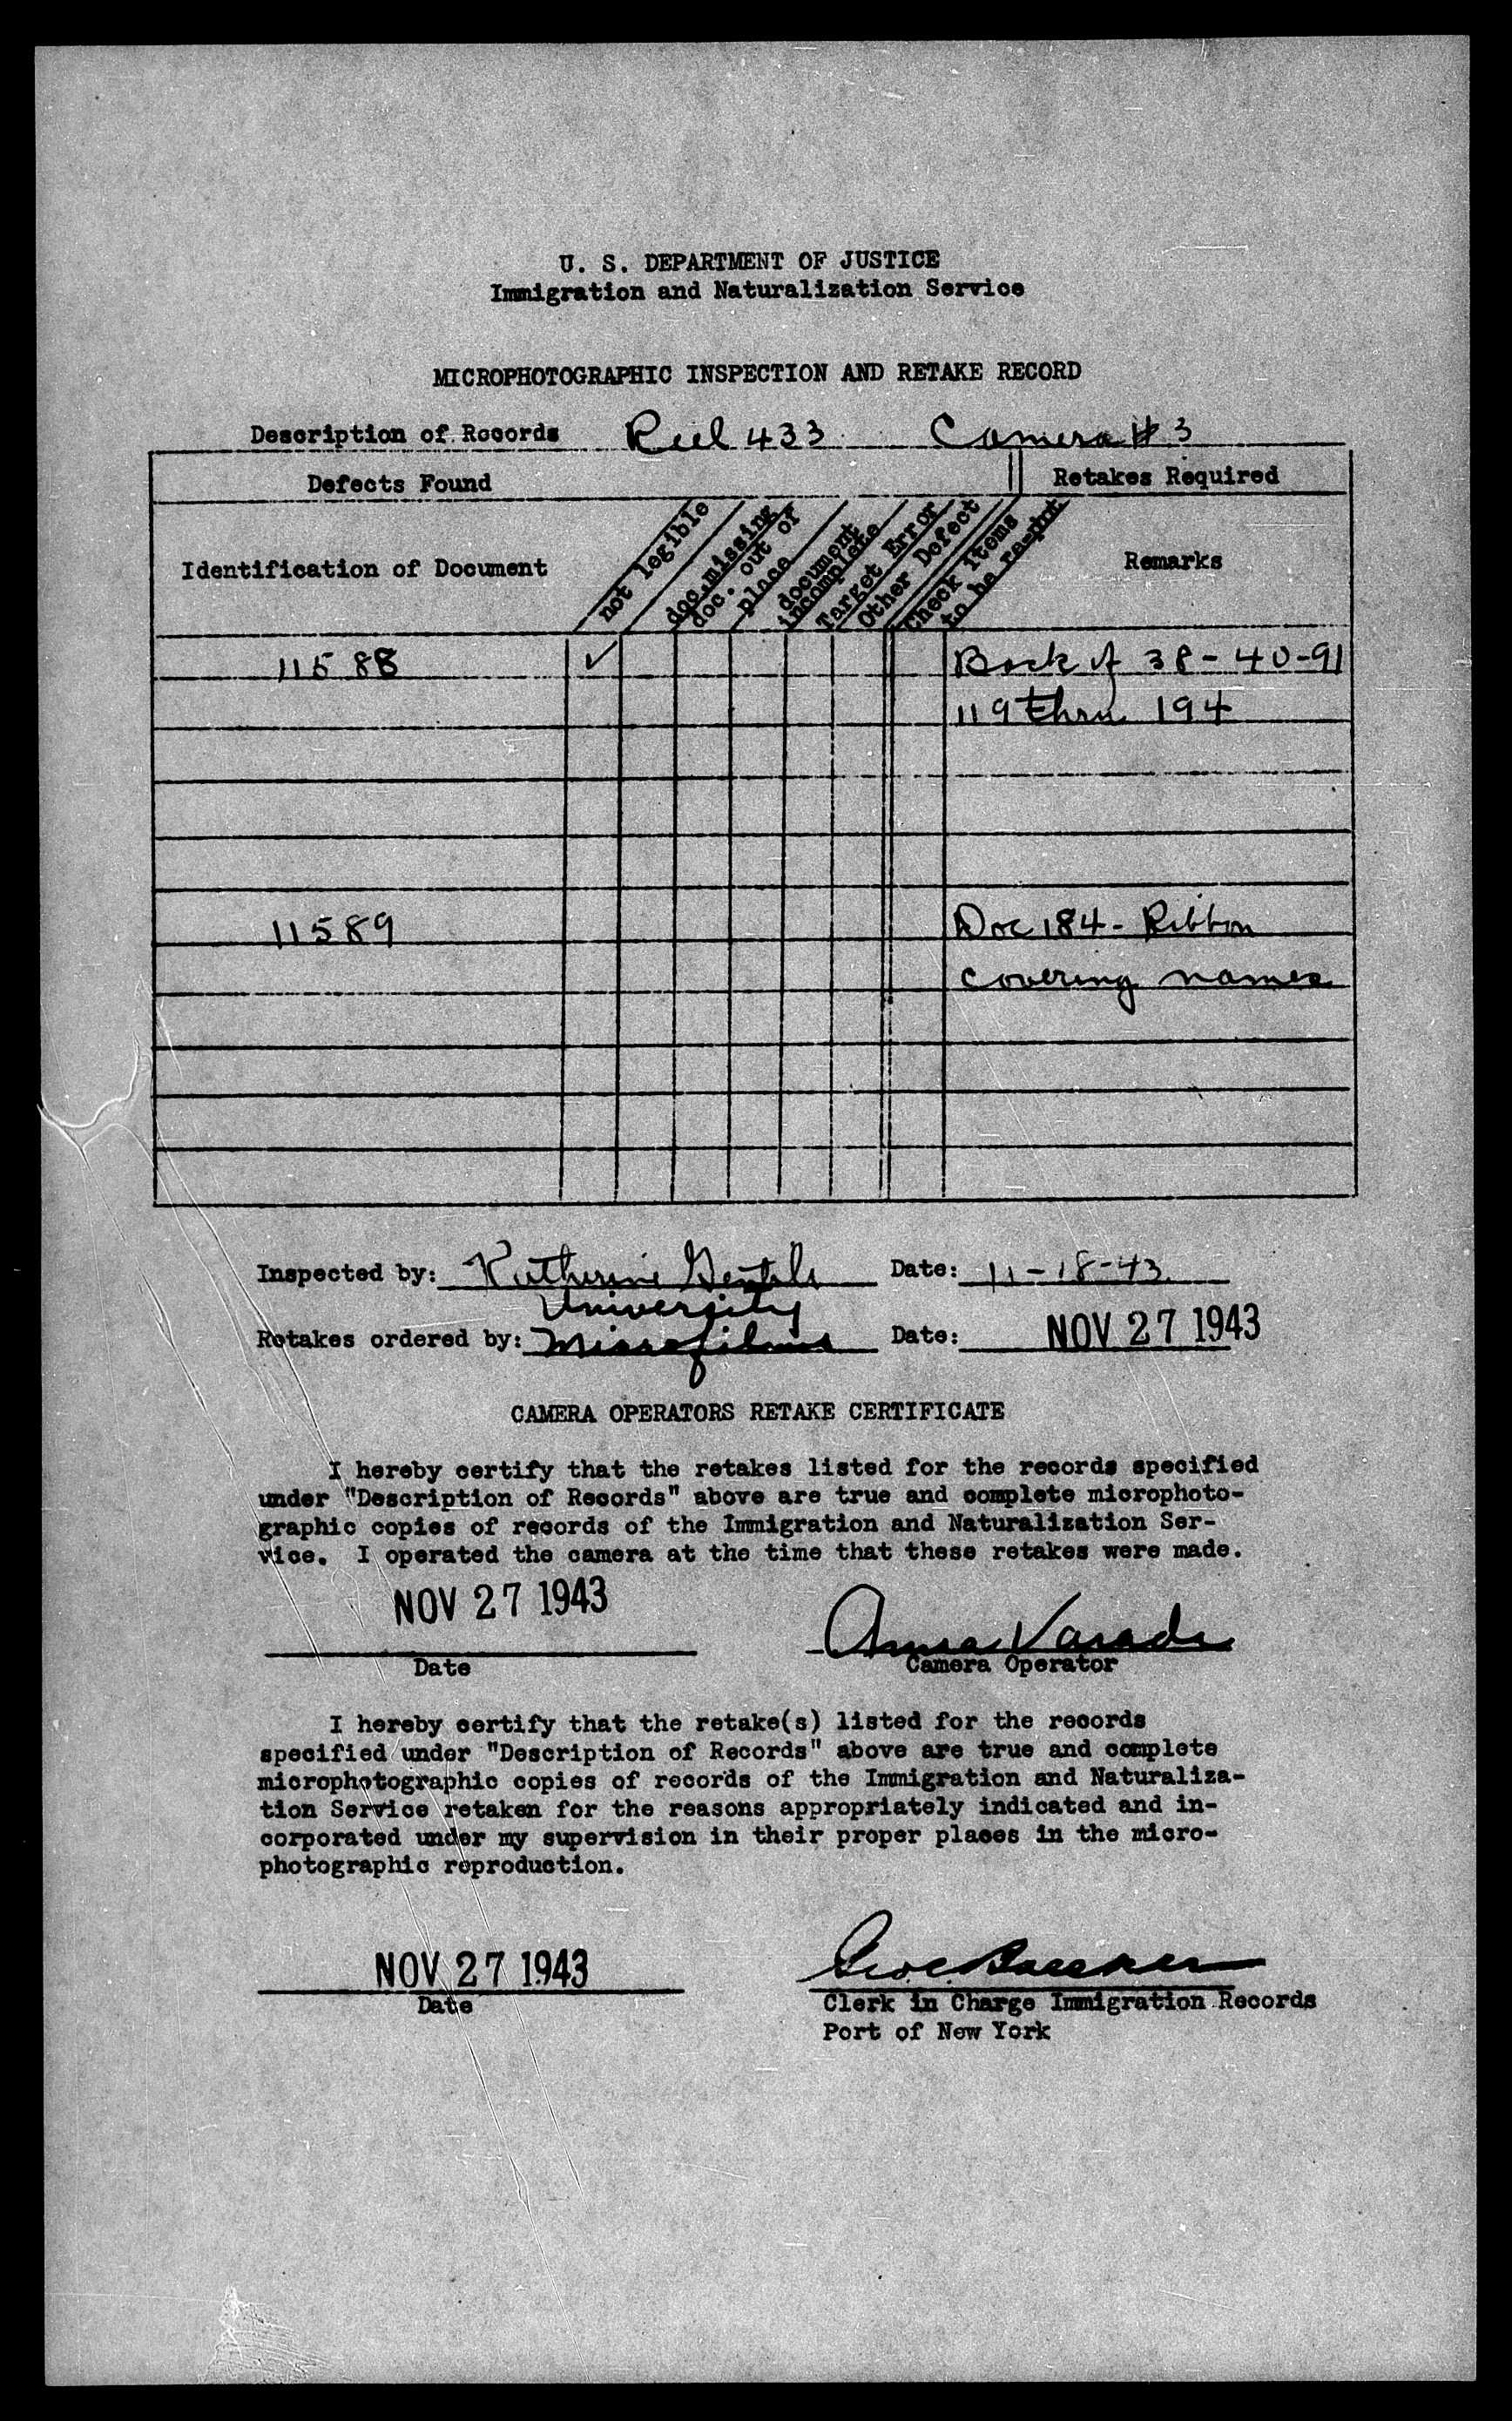 U. S. DEPARTMENT OF JUSTICE
Immigration and Naturalization Service
MICROPHOTOGRAPHIC INSPECTION AND RETAKE RECORD
Description of Records Reel 433 Camera # 3
Defects Found
Retakes Required
Identification of Document
not legible
doc. missing
doc. out of
place
document
incomplete
Target Error
Other Defect
Check Items
to be re-pht
Remarks
11588 ✓ Back of 38-40-91
119 thru 194
11589 Doc 184- Ribbon
covering names
Inspected by: Katherine Date: 11-18-43
University
Retakes ordered by: Microfilms Date: NOV 27 1943
CAMERA OPERATORS RETAKE CERTIFICATE
I hereby certify that the retakes listed for the records specified
under "Description of Records" above are true and complete microphoto-
graphic copies of records of the Immigration and Naturalization Ser-
vice. I operated the camera at the time that these retakes were made.
NOV 27 1943
Anna
Date
Camera Operator
I hereby certify that the retake(s) listed for the records
specified under "Description of Records" above are true and complete
microphotographic copies of records of the Immigration and Naturaliza-
tion Service retaken for the reasons appropriately indicated and in-
corporated under my supervision in their proper places in the micro-
photographic reproduction.
NOV 27 1943
Date
Clerk in Charge Immigration Records
Port of New York